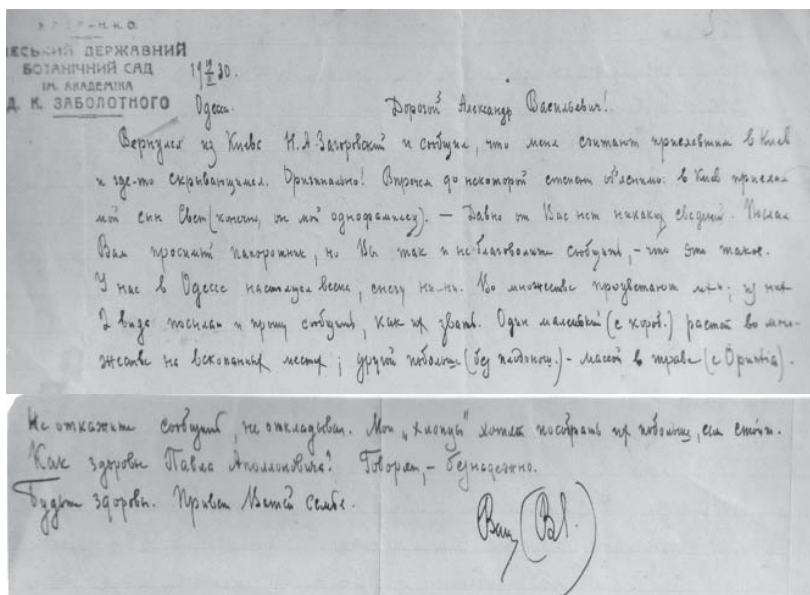 ДЕСЬКИЙ ДЕРЖАВНИЙ
БОТАНІЧНИЙ САД
ІМ. АКАДЕМІКА
Д. К. ЗАБОЛОТНОГО
Одесса.
Дорогой Александр Васильевич!
Вернулся из Киева Н.А. Загоровский и сообщил, что меня считают приехавшим в Киев
и где-то скрывающимся. Оригинально! Впрочем до некоторой степени объяснимо: в Киев приехал
мой сын Свет (конечно, он мой однофамилец). — Давно от Вас нет никаких сведений. Послал
Вам просимый папоротник, но Вы так и не благоволите сообщить, — что это такое.
У нас в Одессе настоящая весна, снегу ни-ни. Во множестве процветают мхи; из них
2 вида посылаю и прошу сообщить, как их звать. Один маленький (с короб.) растет во мно-
жестве на вскопанных местах; другой побольше (без плодонош.) - массой в траве (с Opuntia).
Не откажите сообщить, не откладывая. Мои „хлопцы" хотят пособрать их побольше, если стоит.
Как здоровье Павла Аполлоновича? Говорят, - безнадежно.
Будьте здоровы. Привет Вашей семье.
Ваш